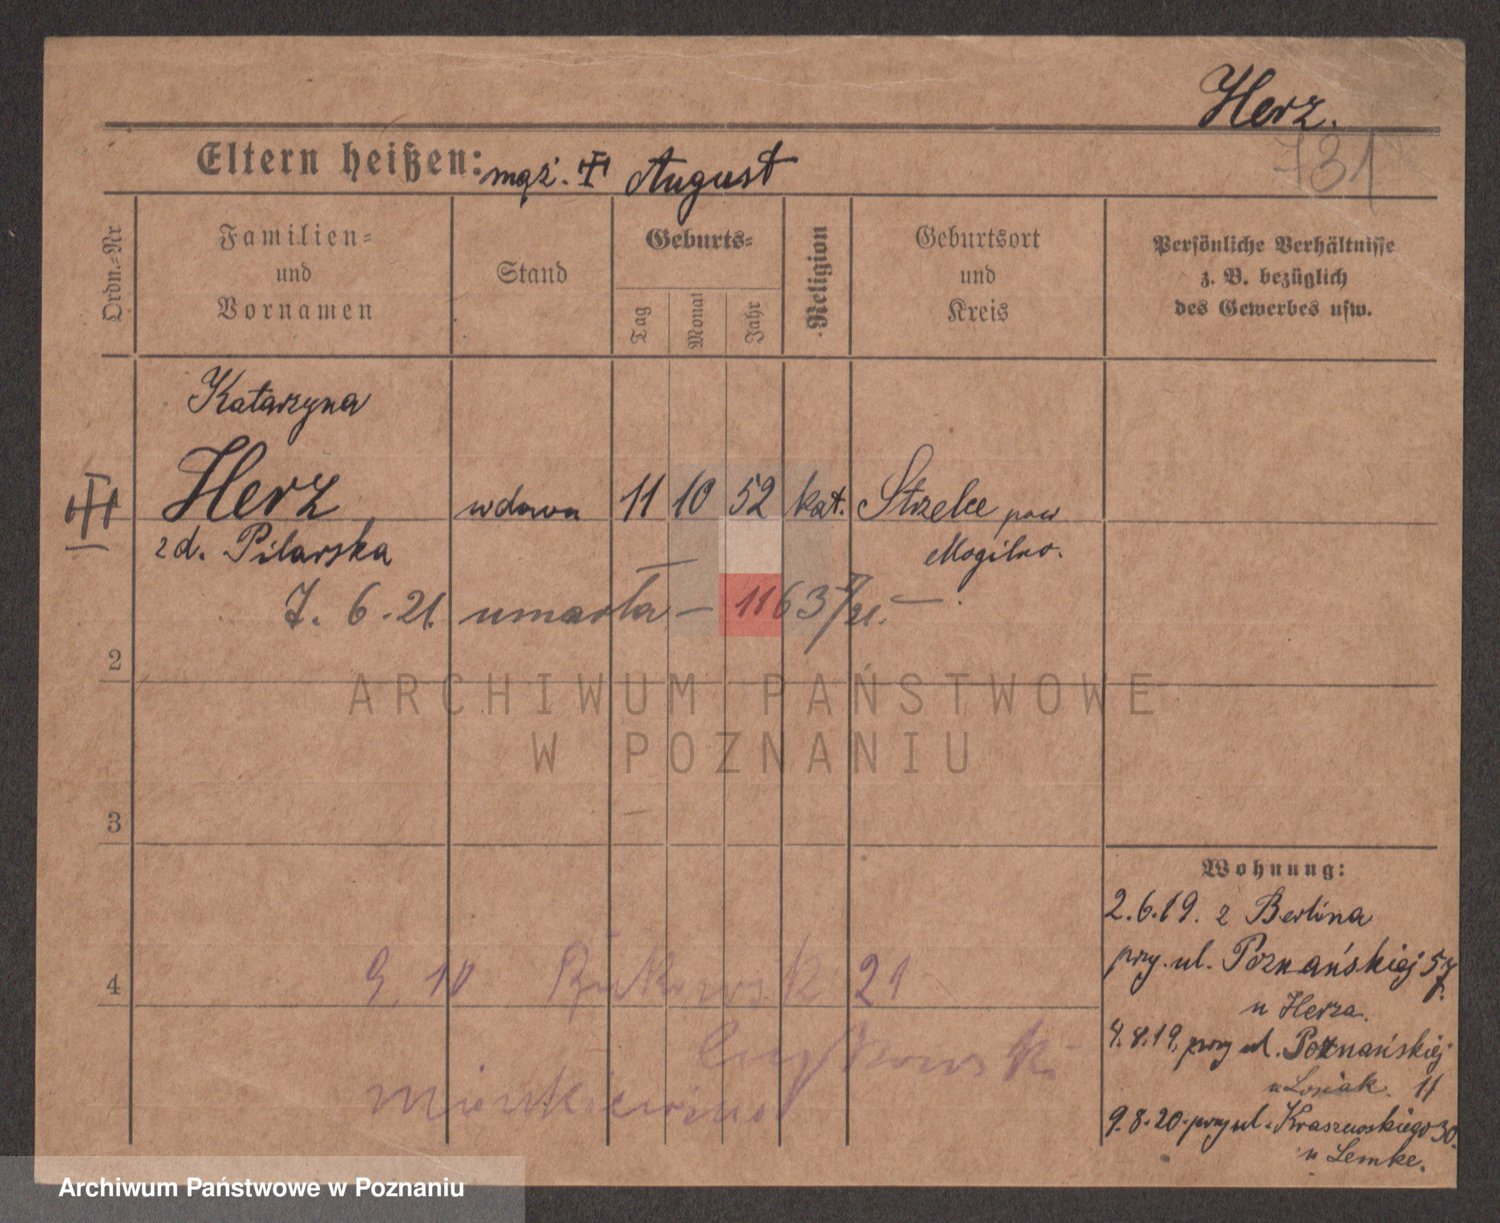 Herz.
731
Eltern heißen: mąż. August
Ordn.=Nr
Familien=
und
Vornamen
Stand
Geburts=
Tag
Monat
Jahr
Religion
Geburtsort
und
Kreis
Persönliche Verhältnisse
z. B. bezüglich
des Gewerbes usw.
Katarzyna
Herz wdowa 11 10 52 kat. Strzelce pow
zd. Pilarska Mogilno.
7. 6. 21. umarła — 1163/21. —
2
ARCHIWUM PAŃSTWOWE
W POZNANIU
3
Wohnung:
2.6.19. z Berlina
przy. ul. Poznańskiej 57.
u Herza.
4.8.19. przy ul. Poznańskiej
u Losiak. 11
9.8.20. przy ul. Kraszewskiego 30.
u Lemke.
4
9. 10 21
Archiwum Państwowe w Poznaniu